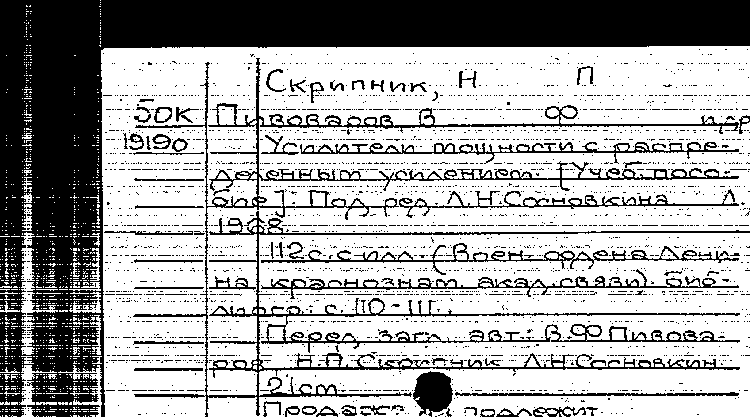 Скрипник, Н П
БОК Пивоваров, В Ф и др
19190 Усилители мощности с распре-
деленным усилением. [Учеб. посо-
бие]. Под ред. Л.Н.Сосновкина. Л.
1968
112 с. с илл. (Воен. ордена Лени-
на краснознам. акад. связи). Биб-
лиогр. с. 110-111.
Перед загл. авт.: В.Ф Пивова-
ров, Н.П. Скрипник, Л.Н.Сосновкин.
21cm
Продаже не подлежит